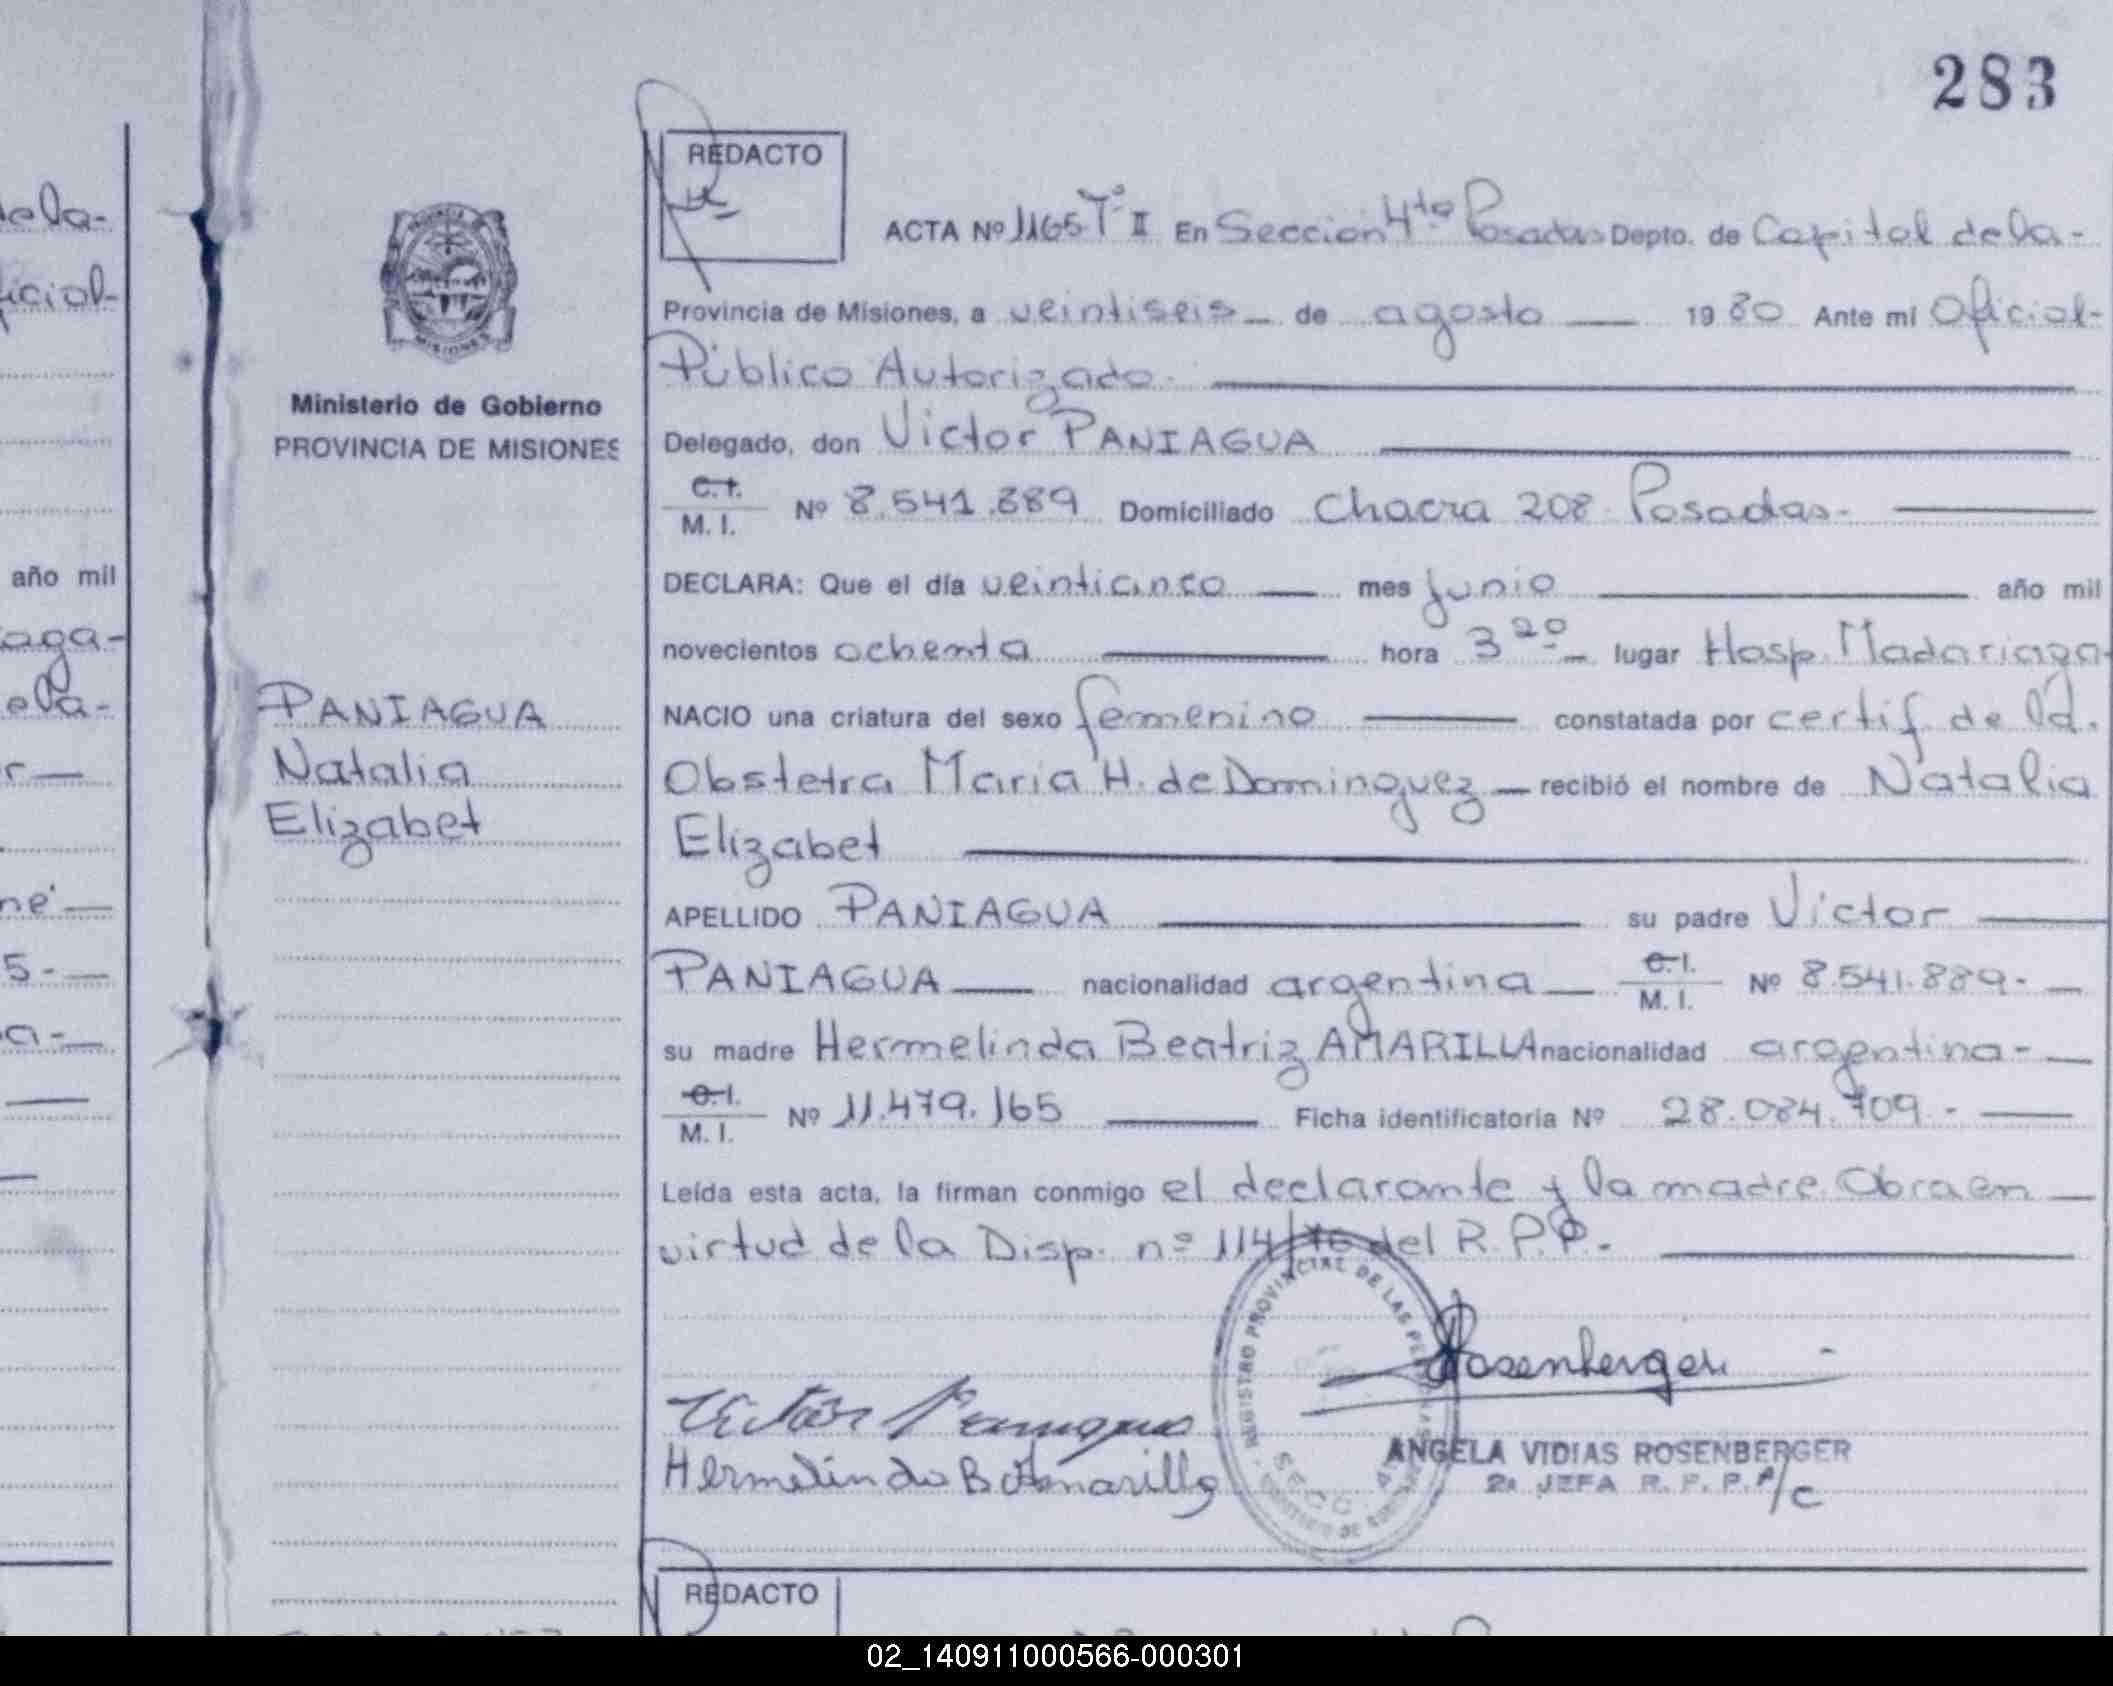 283
REDACTO
ACTA Nº 1165 Tº II En Sección 4ta Posadas Depto. de Capital de la-
Provincia de Misiones, a veintiseis de agosto 1980 Ante mí Oficial-
Público Autorizado.
Delegado, don Victor PANIAGUA
C.I. M. I. Nº 8.541.889 Domiciliado Chacra 208 Posadas.-
DECLARA: Que el día veinticinco mes junio año mil
novecientos ochenta hora 3 20 lugar Hosp. Madariaga-
NACIO una criatura del sexo femenino constatada por certif. de la
Obstetra Maria H. de Dominguez recibió el nombre de Natalia
Elizabet
APELLIDO PANIAGUA su padre Victor
PANIAGUA nacionalidad argentina C.I. M. I. Nº 8.541.889.-
su madre Hermelinda Beatriz AMARILLA nacionalidad argentina-
C.I. M. I. Nº 11.479.165 Ficha identificatoria Nº 28.084.709.-
Leída esta acta, la firman conmigo el declarante y la madre. Obra en
virtud de la Disp. nº 114/76 del R.P.P.-
REGISTRO PROVINCIAL DE LAS PERSONAS
SECC. 4
Rosenberger
Victor Paniagua
Hermelinda B Amarilla
ANGELA VIDIAS ROSENBERGER
2ª JEFA R. P. P. A/C
REDACTO
Ministerio de Gobierno
PROVINCIA DE MISIONES
PANIAGUA
Natalia
Elizabet
de la-
icial-
año mil
aga-
ela-
r
ne
5-
a-
02_140911000566-000301